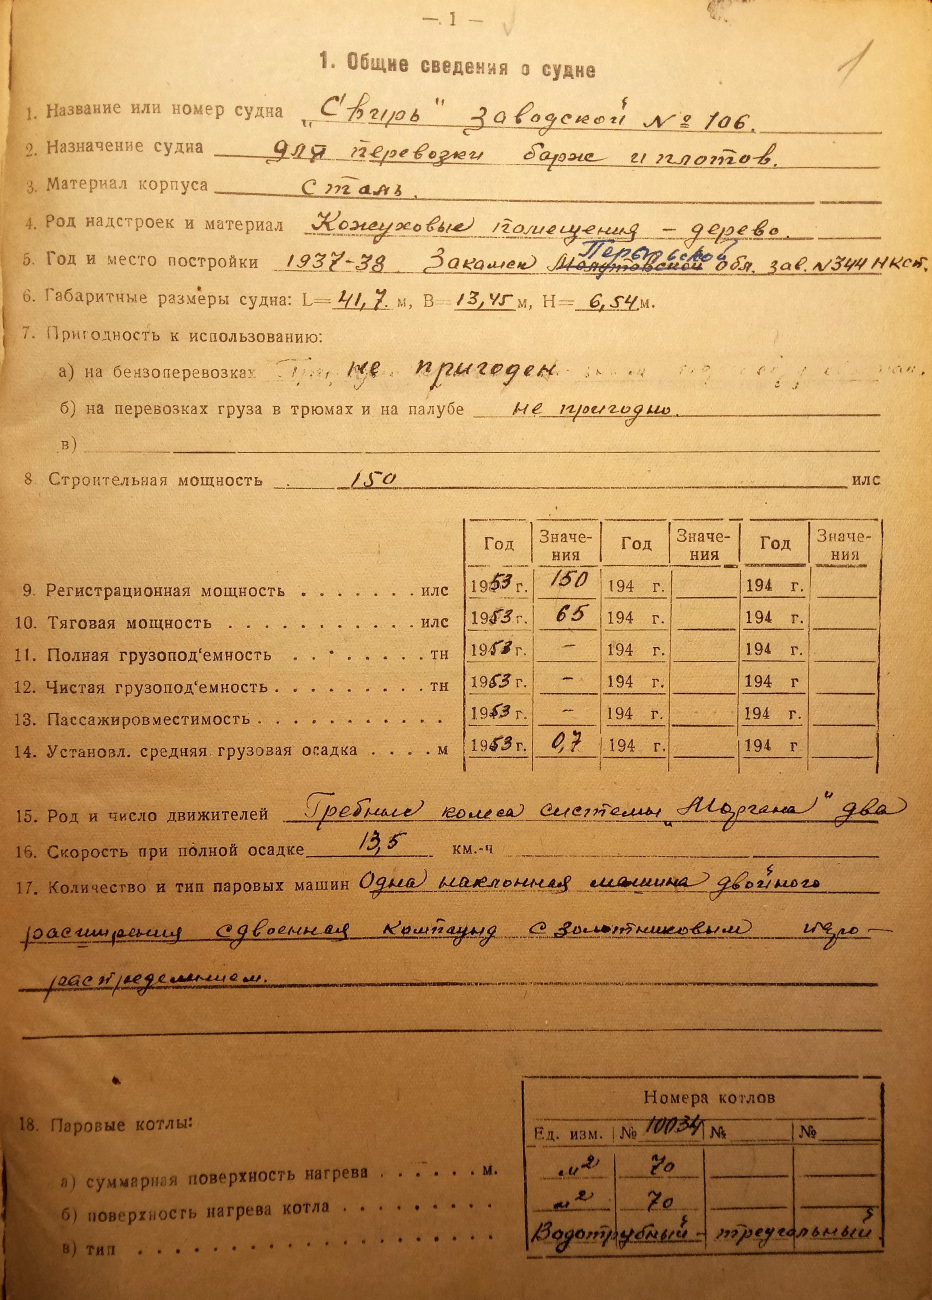 — 1 —
1
1. Общие сведения о судне
1. Название или номер судна „Свирь" Заводской № 106.
2. Назначение судна для перевозки барж и плотов.
3. Материал корпуса Сталь.
4. Род надстроек и материал Кожуховые помещения – дерево.
Пермской
5. Год и место постройки 1937-38 Закамск Молотовской обл. зав. N344 НКСП.
6. Габаритные размеры судна: L= 41,7. м, B= 13,45 м, H= 6,54 м.
7. Пригодность к использованию:
а) на бензоперевозках не пригоден
б) на перевозках груза в трюмах и на палубе не пригодно.
в)
8 Строительная мощность 150 илс
Год Значе- Год Значе- Год Значе-
ния ния ния
9. Регистрационная мощность . . . . . . . илс 1953 г. 150 194 г. 194 г.
10. Тяговая мощность . . . . . . . . . . . илс 1953 г. 65 194 г. 194 г.
11. Полная грузопод‘емность . . . . . . . . тн 1953 г. – 194 г. 194 г.
12. Чистая грузопод‘емность . . . . . . . . тн 1953 г. – 194 г. 194 г
13. Пассажировместимость . . . . . . . . . . 1953 г. – 194 г. 194 г.
14. Установл. средняя грузовая осадка . . . . м 1953 г. 0,7 194 г. 194 г
15. Род и число движителей Гребные колеса системы „Моргана" два
16. Скорость при полной осадке 13,5 км.-ч
17. Количество и тип паровых машин Одна наклонная машина двойного
расширения сдвоенная компаунд с золотниковым паро—
распределением.
Номера котлов
18. Паровые котлы:
Ед. изм. № 10034 № №
а) суммарная поверхность нагрева . . . . . . м. м² 70
б) поверхность нагрева котла . . . . . . . . . м² 70
в) тип . . . . . . . . . . . . . . . . . . Водотрубный – треугольный.